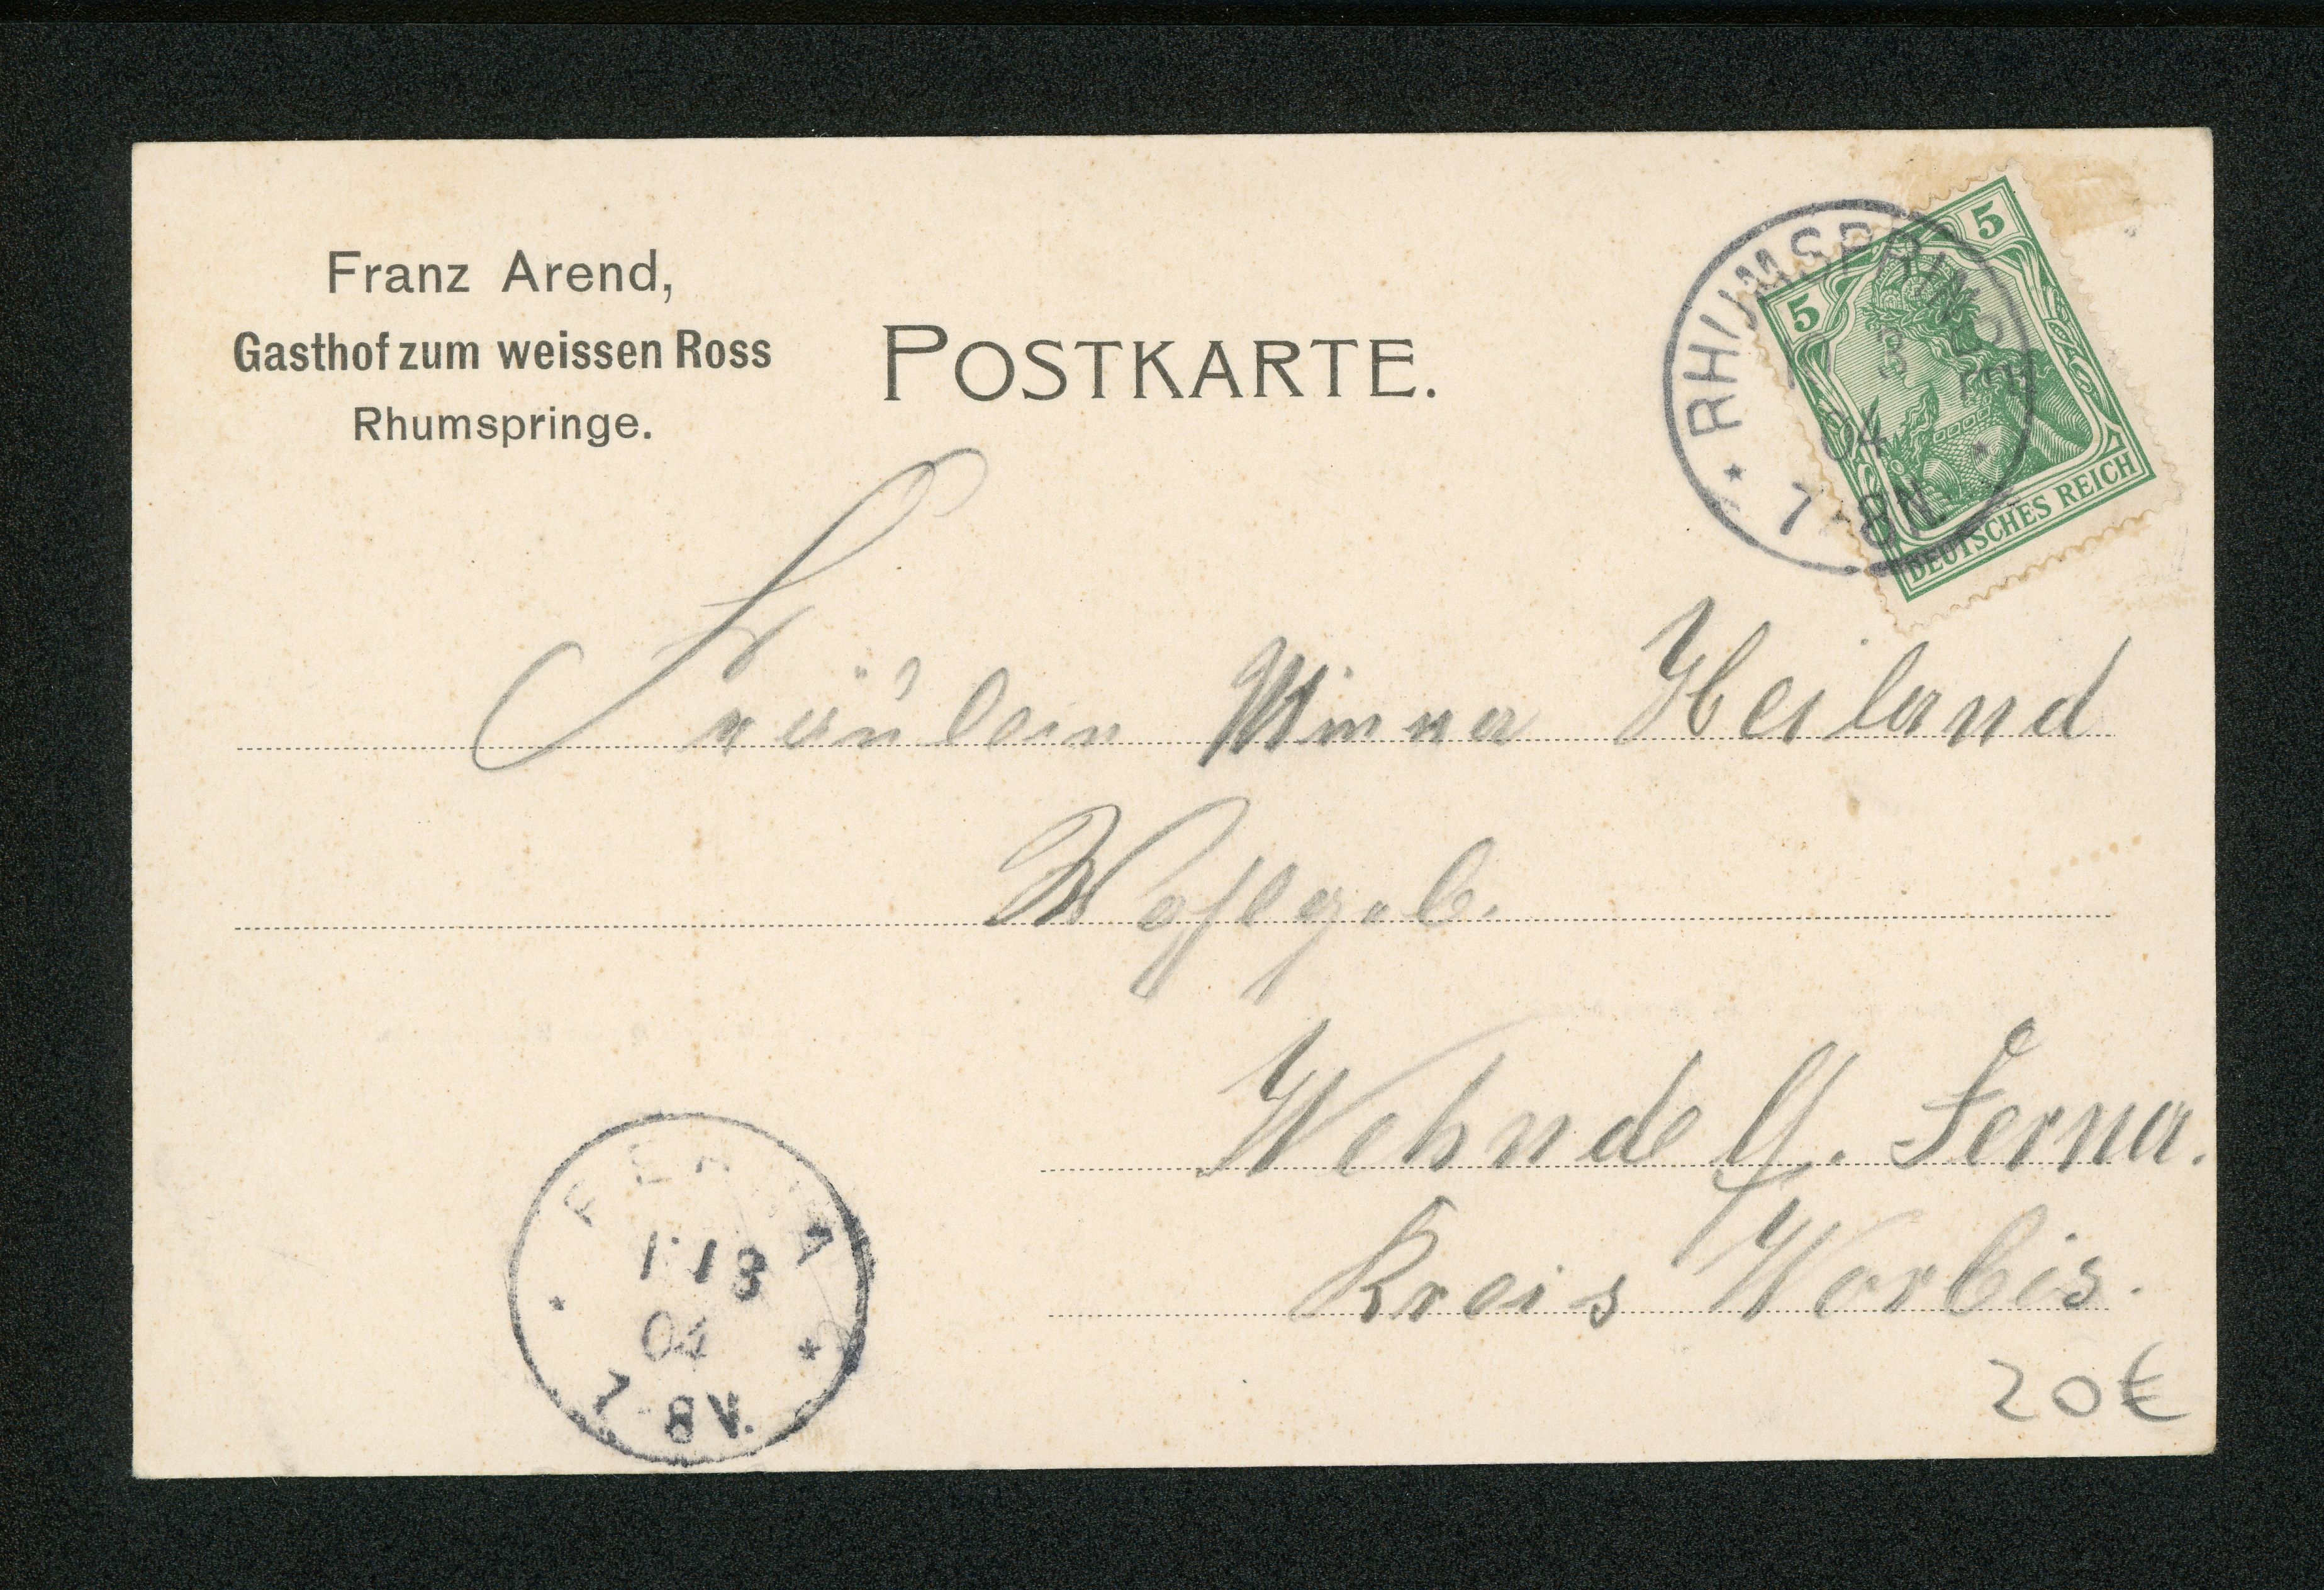 Franz Arend,
Gasthof zum weissen Ross
Rhumspringe.
POSTKARTE.
RHUMSPRINGE
3
04
7-8N.
5
5
DEUTSCHES REICH
Fräulein Minna Heiland
Wehnde
Ferna.
Kreis Worbis.
FERNA
04
7-8V.
20€